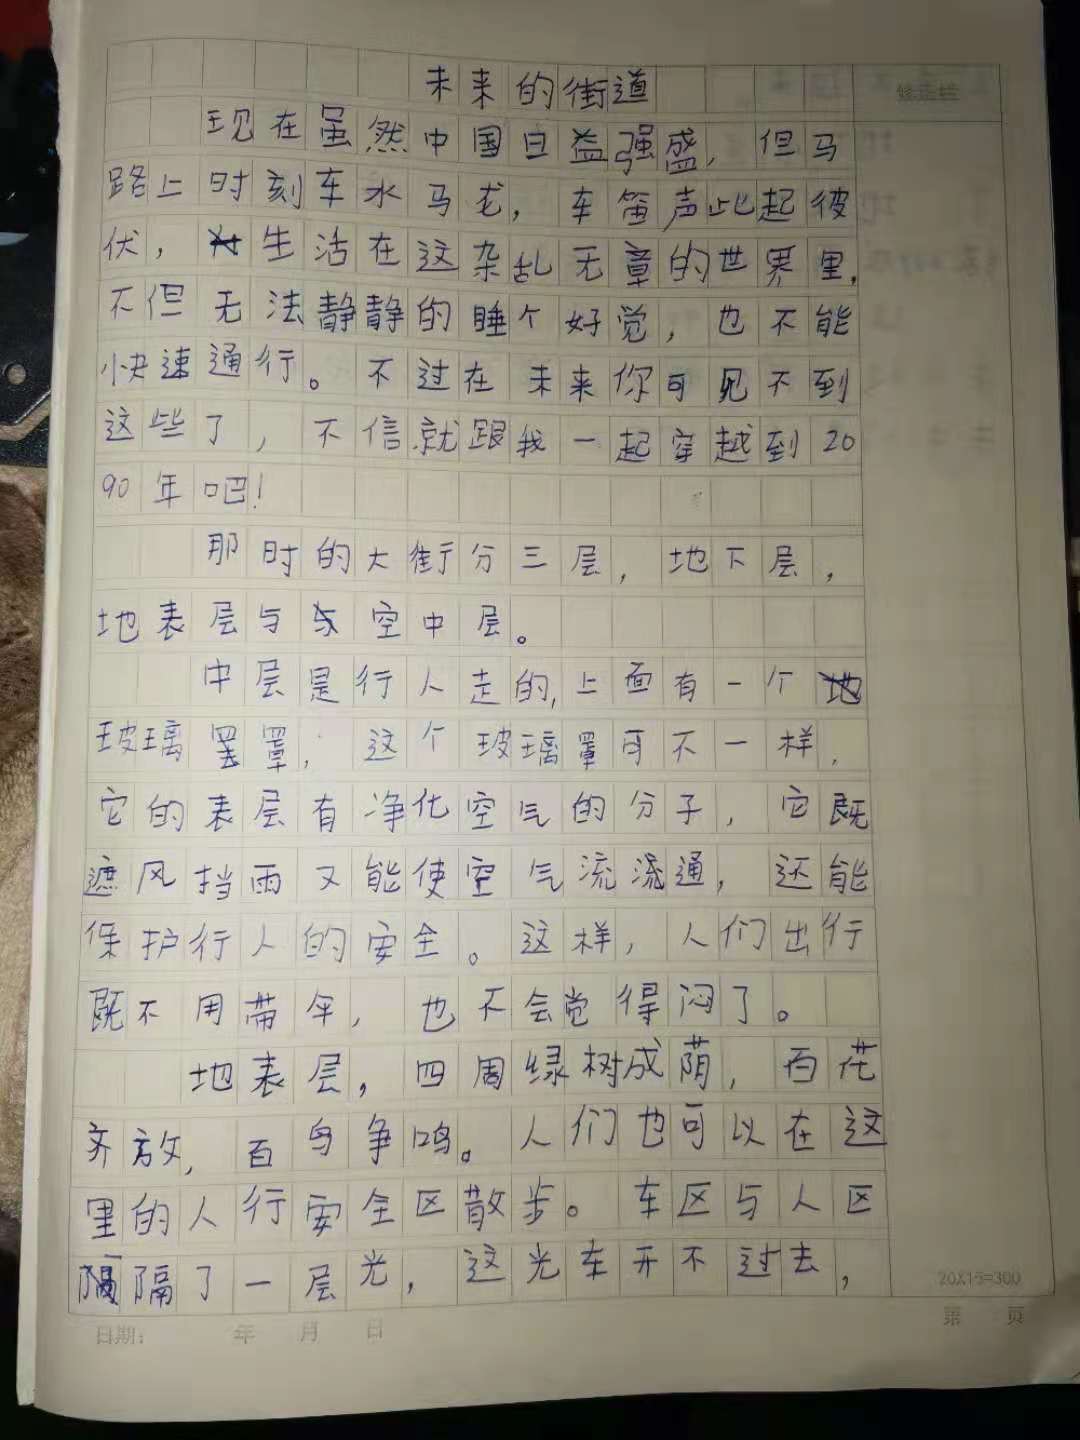 未来的街道
现在虽然中国日益强盛，但马
路上时刻车水马龙，车笛声此起彼
伏，生活在这杂乱无章的世界里，
不但无法静静的睡个好觉，也不能
快速通行。不过在未来你可见不到
这些了，不信就跟我一起穿越到20
90年吧！
那时的大街分三层，地下层，
地表层与空中层。
中层是行人走的，上面有一个
玻璃罩，这个玻璃罩可不一样，
它的表层有净化空气的分子，它既
遮风挡雨又能使空气流通，还能
保护行人的安全。这样，人们出行
既不用带伞，也不会觉得闷了。
地表层，四周绿树成荫，百花
齐放，百鸟争鸣。人们也可以在这
里的人行安全区散步。车区与人区
隔了一层光，这光车开不过去，
20X15=300
第 页
日期： 年 月 日